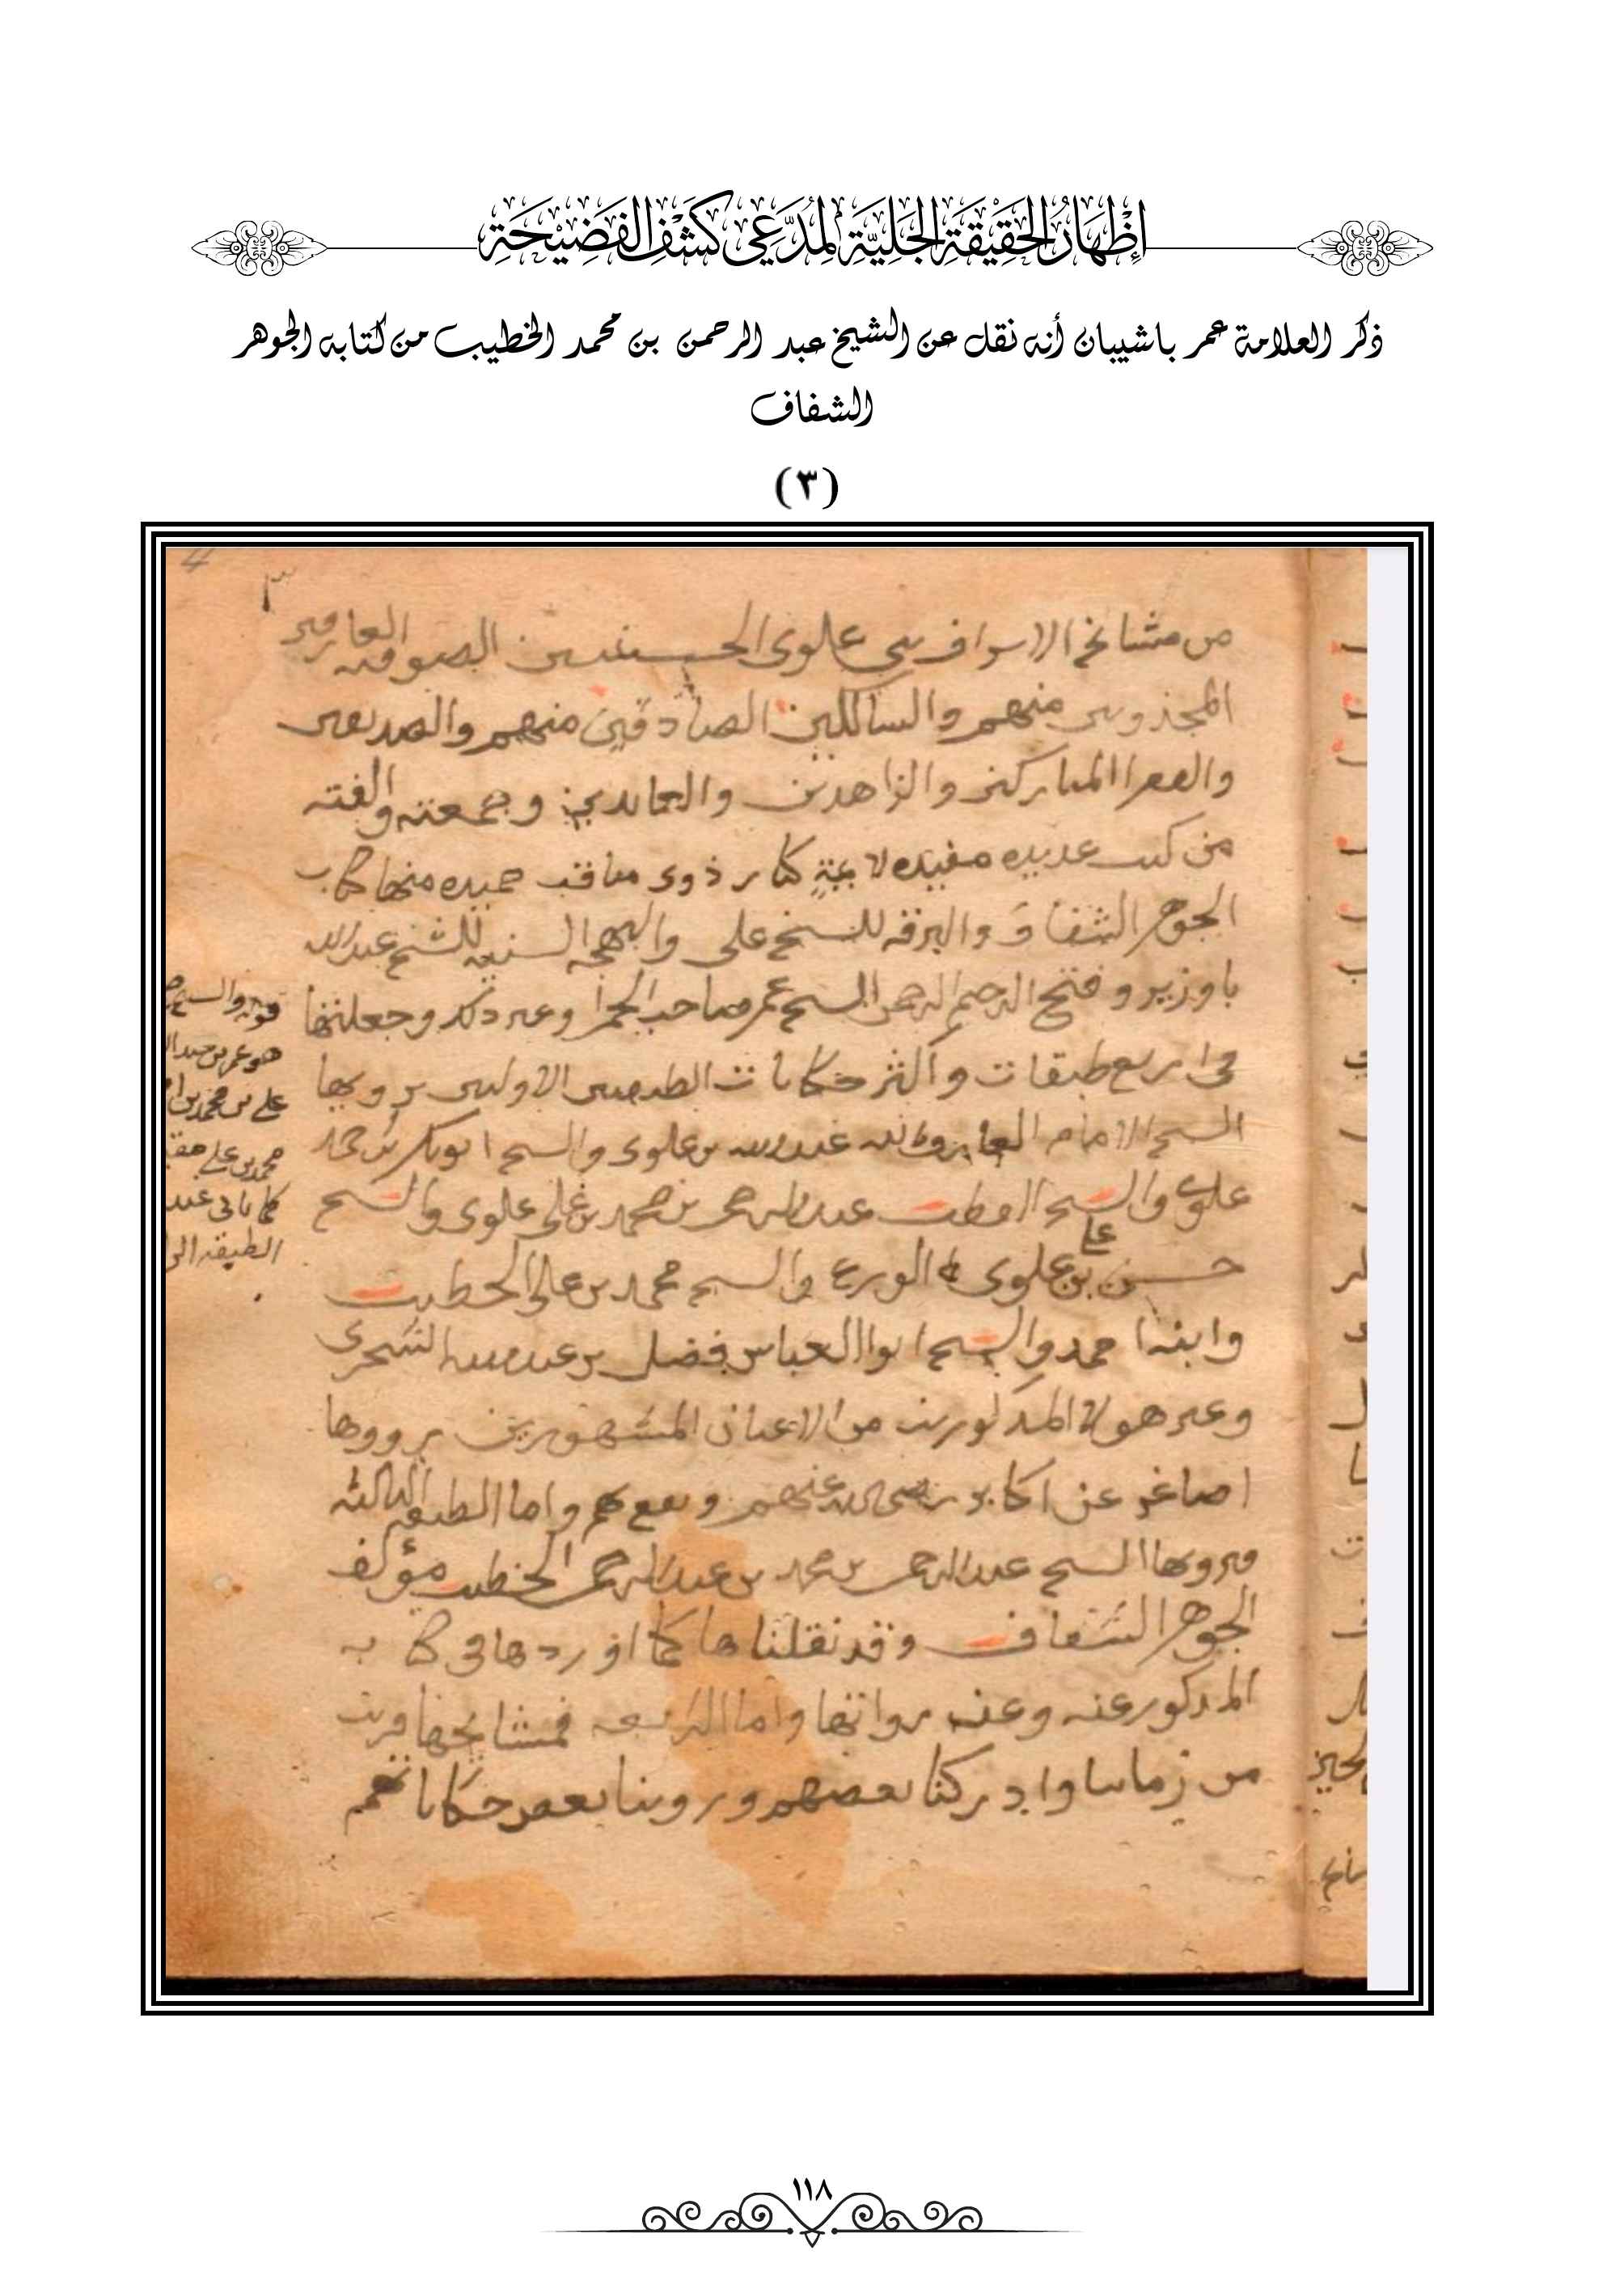 إِظْهَارُ الحَقِيْقَةِ الجَلِيَّةِ لِمُدَّعِي كَشْفِ الفَضِيْحَةِ
ذكر العلامة عمر باشيبان أنه نقل عن الشيخ عبد الرحمن بن محمد الخطيب من كتابه الجوهر
الشفاف
(٣)
٣
من مشايخ الاسراف بني علوى الحسينيين الصوفيه العارفين
المجذوبين منهم والسالكين الصادقين منهم والصديقين
والفقرا المباركين والزاهدين والعابدين وجمعته والفته
من كتب عديده مفيده لايمة كابر ذوى مناقب حميده منها كتاب
الجوهر الشفاف والبرقه للشيخ على والبهجه السنيه للشيخ عبدالله
باوزير وفتح الرحيم الرحمن للشيخ عمر صاحب الحمرا وغير ذلك وجعلتها
فى اربع طبقات واكثر حكايات الطبقتين الاوليين يرويها
الشيخ الامام العارف بالله عبدالله بن علوى والشيخ ابوبكر بن احمد
علوى والشيخ القطب عبدالرحمن بن محمد بن على علوى والشيخ
حسن بن على علوى الورع والشيخ محمد بن على الخطيب
وابنه احمد والشيخ ابوا العباس فضل بن عبدالله الشحرى
وغير هولا المذكورين من الاعيان المشهورين يرووها
اصاغر عن اكابر رضى الله عنهم ونفع بهم واما الطبقه الثالثه
فيرويها الشيخ عبدالرحمن بن محمد بن عبدالرحمن الخطيب مؤلف
الجوهر الشفاف وقد نقلناها كما اوردها فى كتابه
المذكور عنه وعنه روايتها واما الرابعه فمشايخها قريب
من زماننا وادركنا بعضهم وروينا بعض حكاياتهم
قوله والشيخ
هو عمر بن عبدال
على بن محمد بن ا
محمد بن على
كما ياتى عند
الطبقه الرا
١١٨